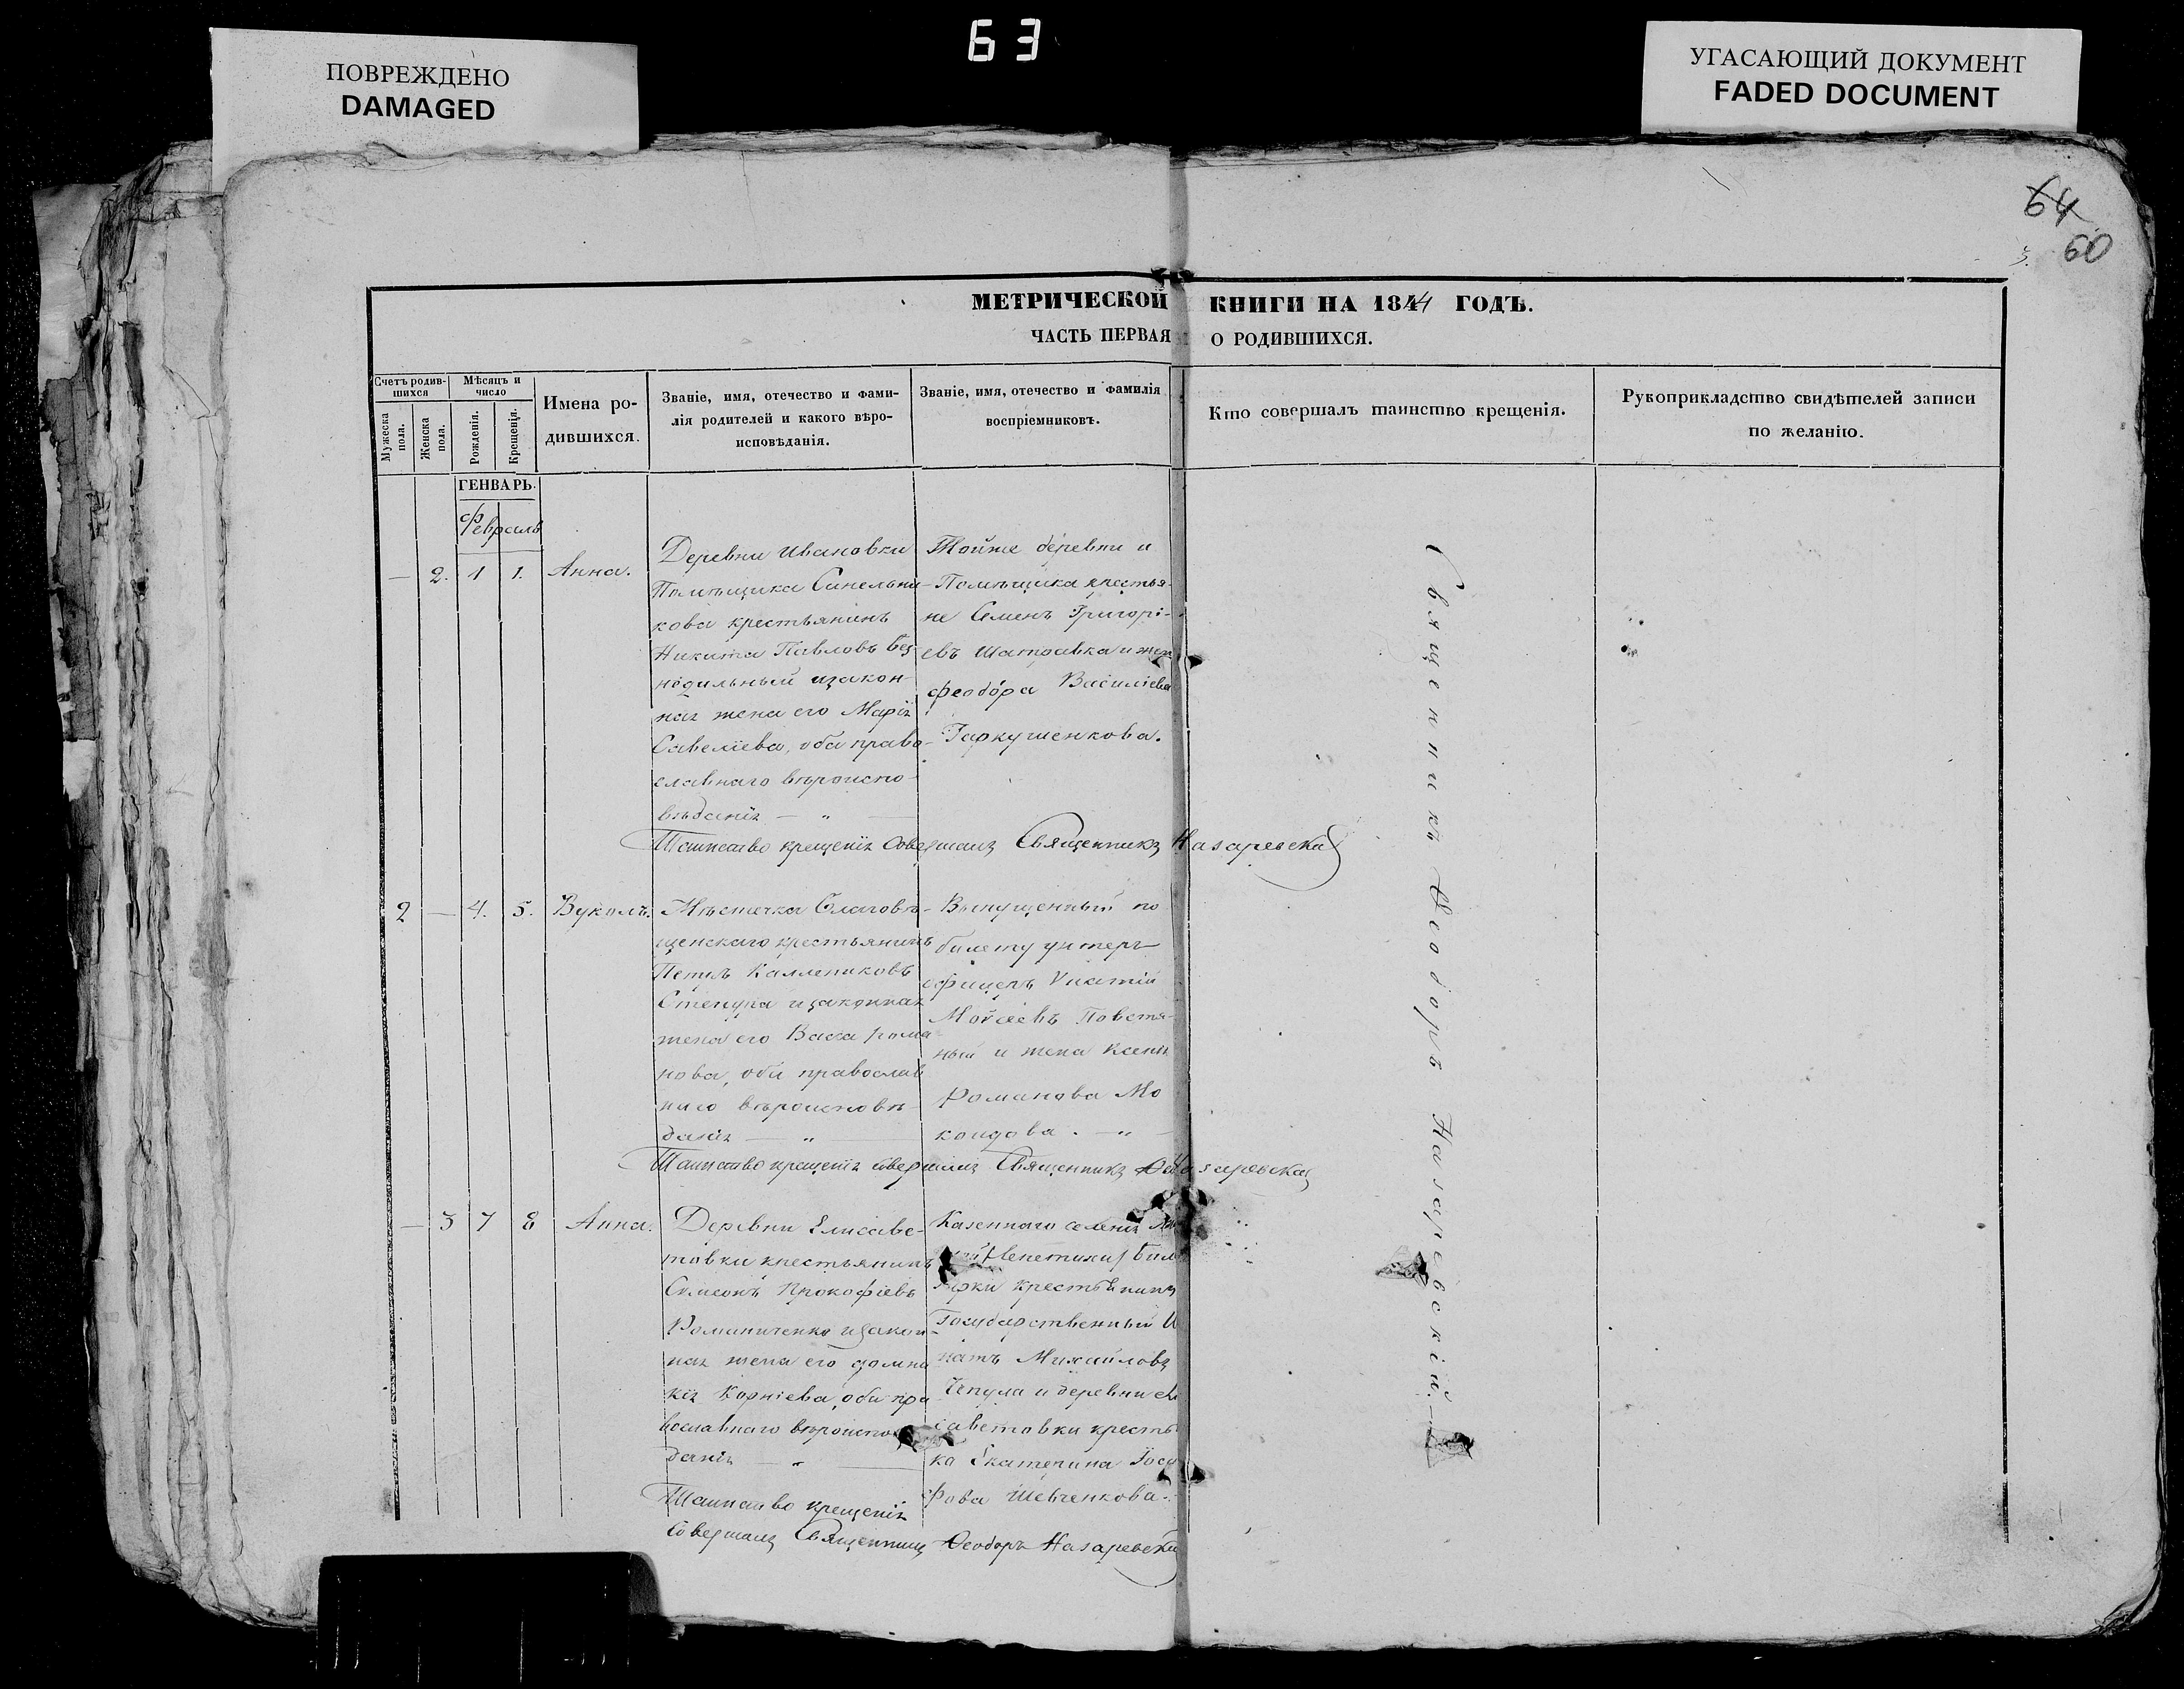 63
ПОВРЕЖДЕНО
DAMAGED
УГАСАЮЩИЙ ДОКУМЕНТ
FADED DOCUMENT
64
60
МЕТРИЧЕСКОЙ КНИГИ НА 1844 ГОДЪ.
ЧАСТЬ ПЕРВАЯ О РОДИВШИХСЯ.
Счетъ родив-
шихся
Мужеска пола.
Женска пола.
Мѣсяцъ и
число
Рожденія.
Крещенія.
Имена ро-
дившихся.
Званіе, имя, отечество и фами-
лія родителей и какого вѣро-
исповѣданія.
Званіе, имя, отечество и фамилія
воспріемниковъ.
Кто совершалъ таинство крещенія.
Рукоприкладство свидѣтелей записи
по желанію.
ГЕНВАРЬ.
Февраль
— 2. 1 1. Анна.
Деревни Ивановки
Помѣщика Синельни-
кова крестьянинъ
Никита Павловъ Без-
недильный изакон-
ная жена его Марія
Савеліева, оба право-
славнаго вѣроиспо-
вѣданія — „ —
Тойже деревни и
Помѣщика крестья-
не Семенъ Григорі-
евъ Шатравка и
Феодора Василіева
Гаркушенкова.
Таинство крещенія Совершалъ Священникъ Назаревскій
2 — 4. 5. Вуколъ.
Мѣстечка Благовѣ-
щенскаго крестьянинъ
Петръ Каллениковъ
Степура изаконная
жена его Васса Рома
нова, оба православ
наго вѣроисповѣ-
данія — „ —
Выпущенный по
билету унтеръ
офицеръ Ипатій
Моѵсеевъ Повстя-
ный и жена Ксенія
Романова Мо
коидова. — „ —
Таинство крещенія совершалъ Священникъ Назаревскій
— 3 7 8 Анна.
Деревни Елисаве-
товки крестьянинъ
Симеонъ Прокофіевъ
Романиченко изакон-
ная жена его Домни
кія Корніева, оба пра
вославнаго вѣроиспо
данія — „ —
Казеннаго селенія
крестьянинъ
Государственный И
натъ Михайловъ
Чепула и деревни Ели
саветовки крестья
ка Екатерина Іоси
фова Шевченкова.
Таинство крещенія
Совершалъ Священникъ Ѳеодоръ Назаревскій
Священникъ Ѳеодоръ Назаревскій.